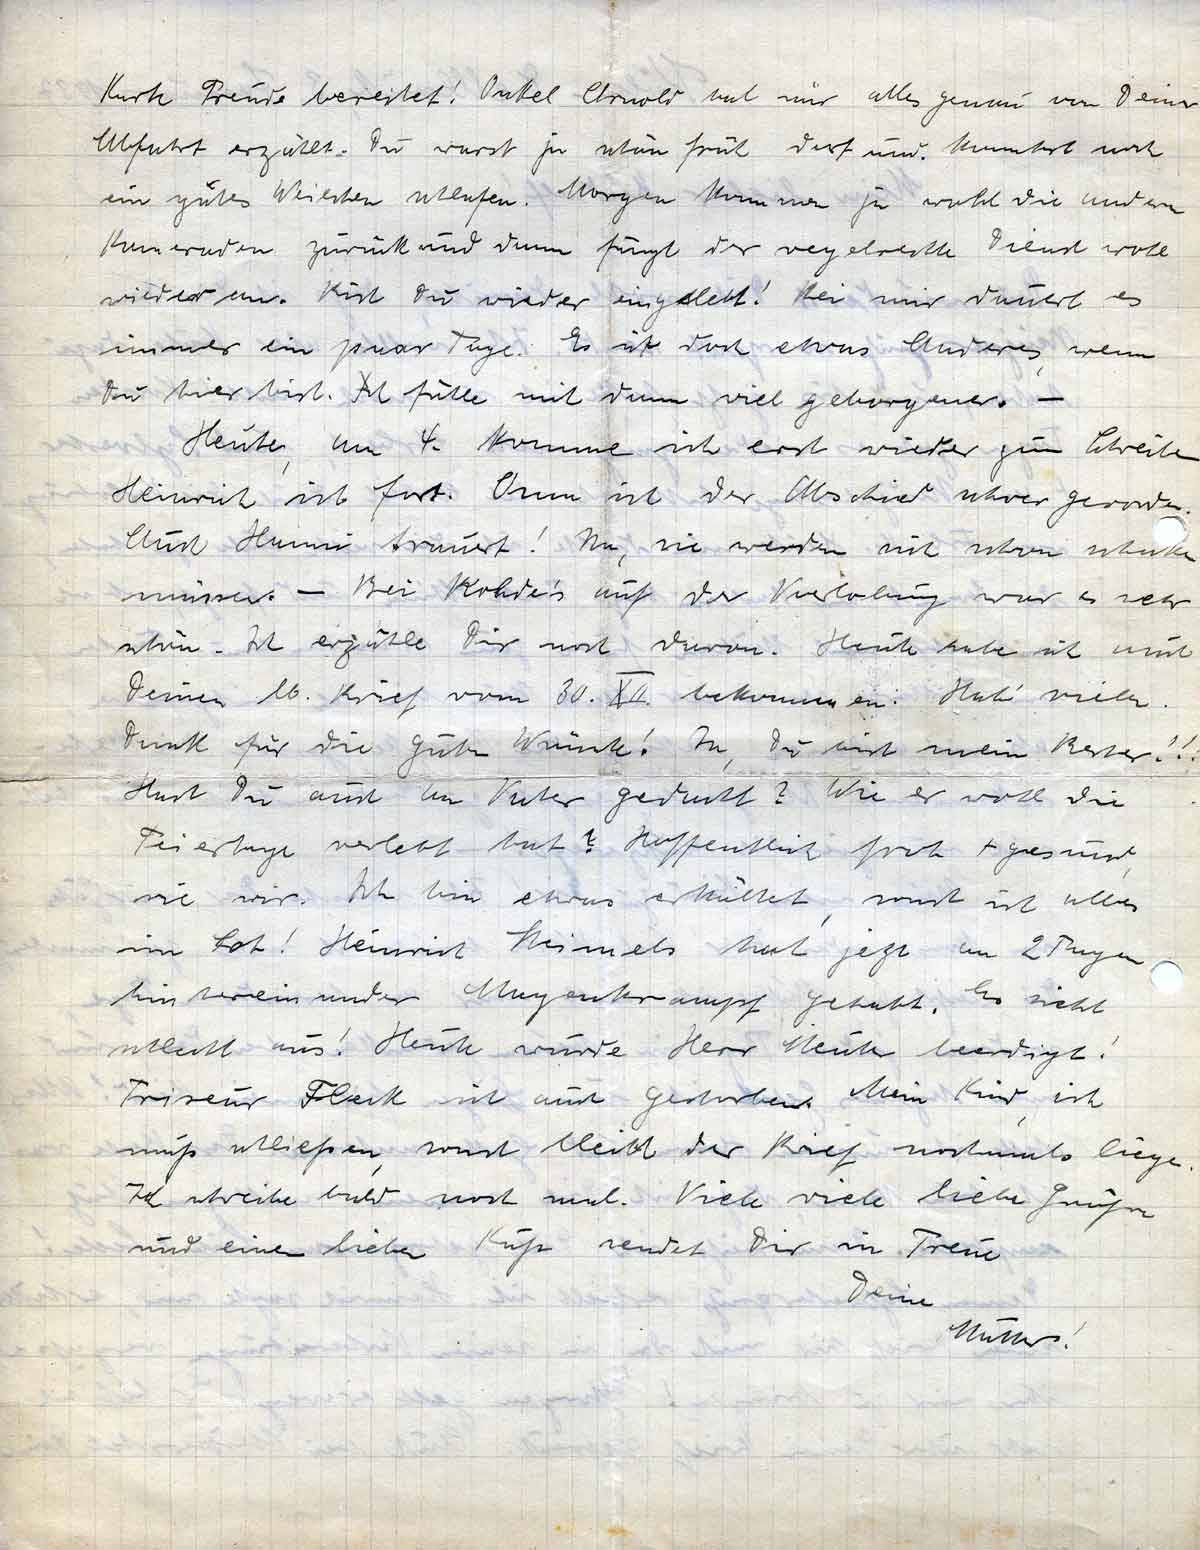 Karte Freude bereitet! Onkel Arnold hat mir alles genau von Deiner
Abfahrt erzählt. Du warst ja schön früh dort und konntest noch
ein gutes Weilchen schlafen. Morgen kommen ja wohl die andern
Kameraden zurück und dann fängt der regelrechte Dienst wohl
wieder an. Bist Du wieder eingelebt! Bei mir dauert es
immer ein paar Tage. Es ist doch etwas Anderes, wenn
Du hier bist. Ich fühle mich dann viel geborgener. –
Heute, am 4. komme ich erst wieder zum Schreiben
Heinrich ist fort. Oma ist der Abschied schwer geworden.
Auch Hanni trauert! Na, sie werden sich schon schicken
müssen. – Bei Rohde's auf der Verlobung war es sehr
schön. Ich erzähle Dir noch davon. Heute habe ich auch
Deinen lb. Brief vom 30. XII. bekommen. Hab' vielen
Dank für die guten Wünsche! Ja, Du bist mein Bester!!!
Hast Du auch an Vater gedacht? Wie er wohl die
Feiertage verlebt hat? Hoffentlich froh + gesund,
wie wir. Ich bin etwas erkältet, sonst ist alles
im Lot! Heinrich hat jetzt an 2 Tagen
hintereinander Magenkrampf gehabt. Er sieht
schlecht aus! Heute wurde Herr beerdigt!
Friseur Fleck ist auch gestorben. Mein Kind, ich
muß schließen, sonst bleibt der Brief nochmals liegen.
Ich schreibe bald noch mal. Viele viele liebe Grüße
und einen lieben Kuß sendet Dir in Treue
Deine
Mutter!